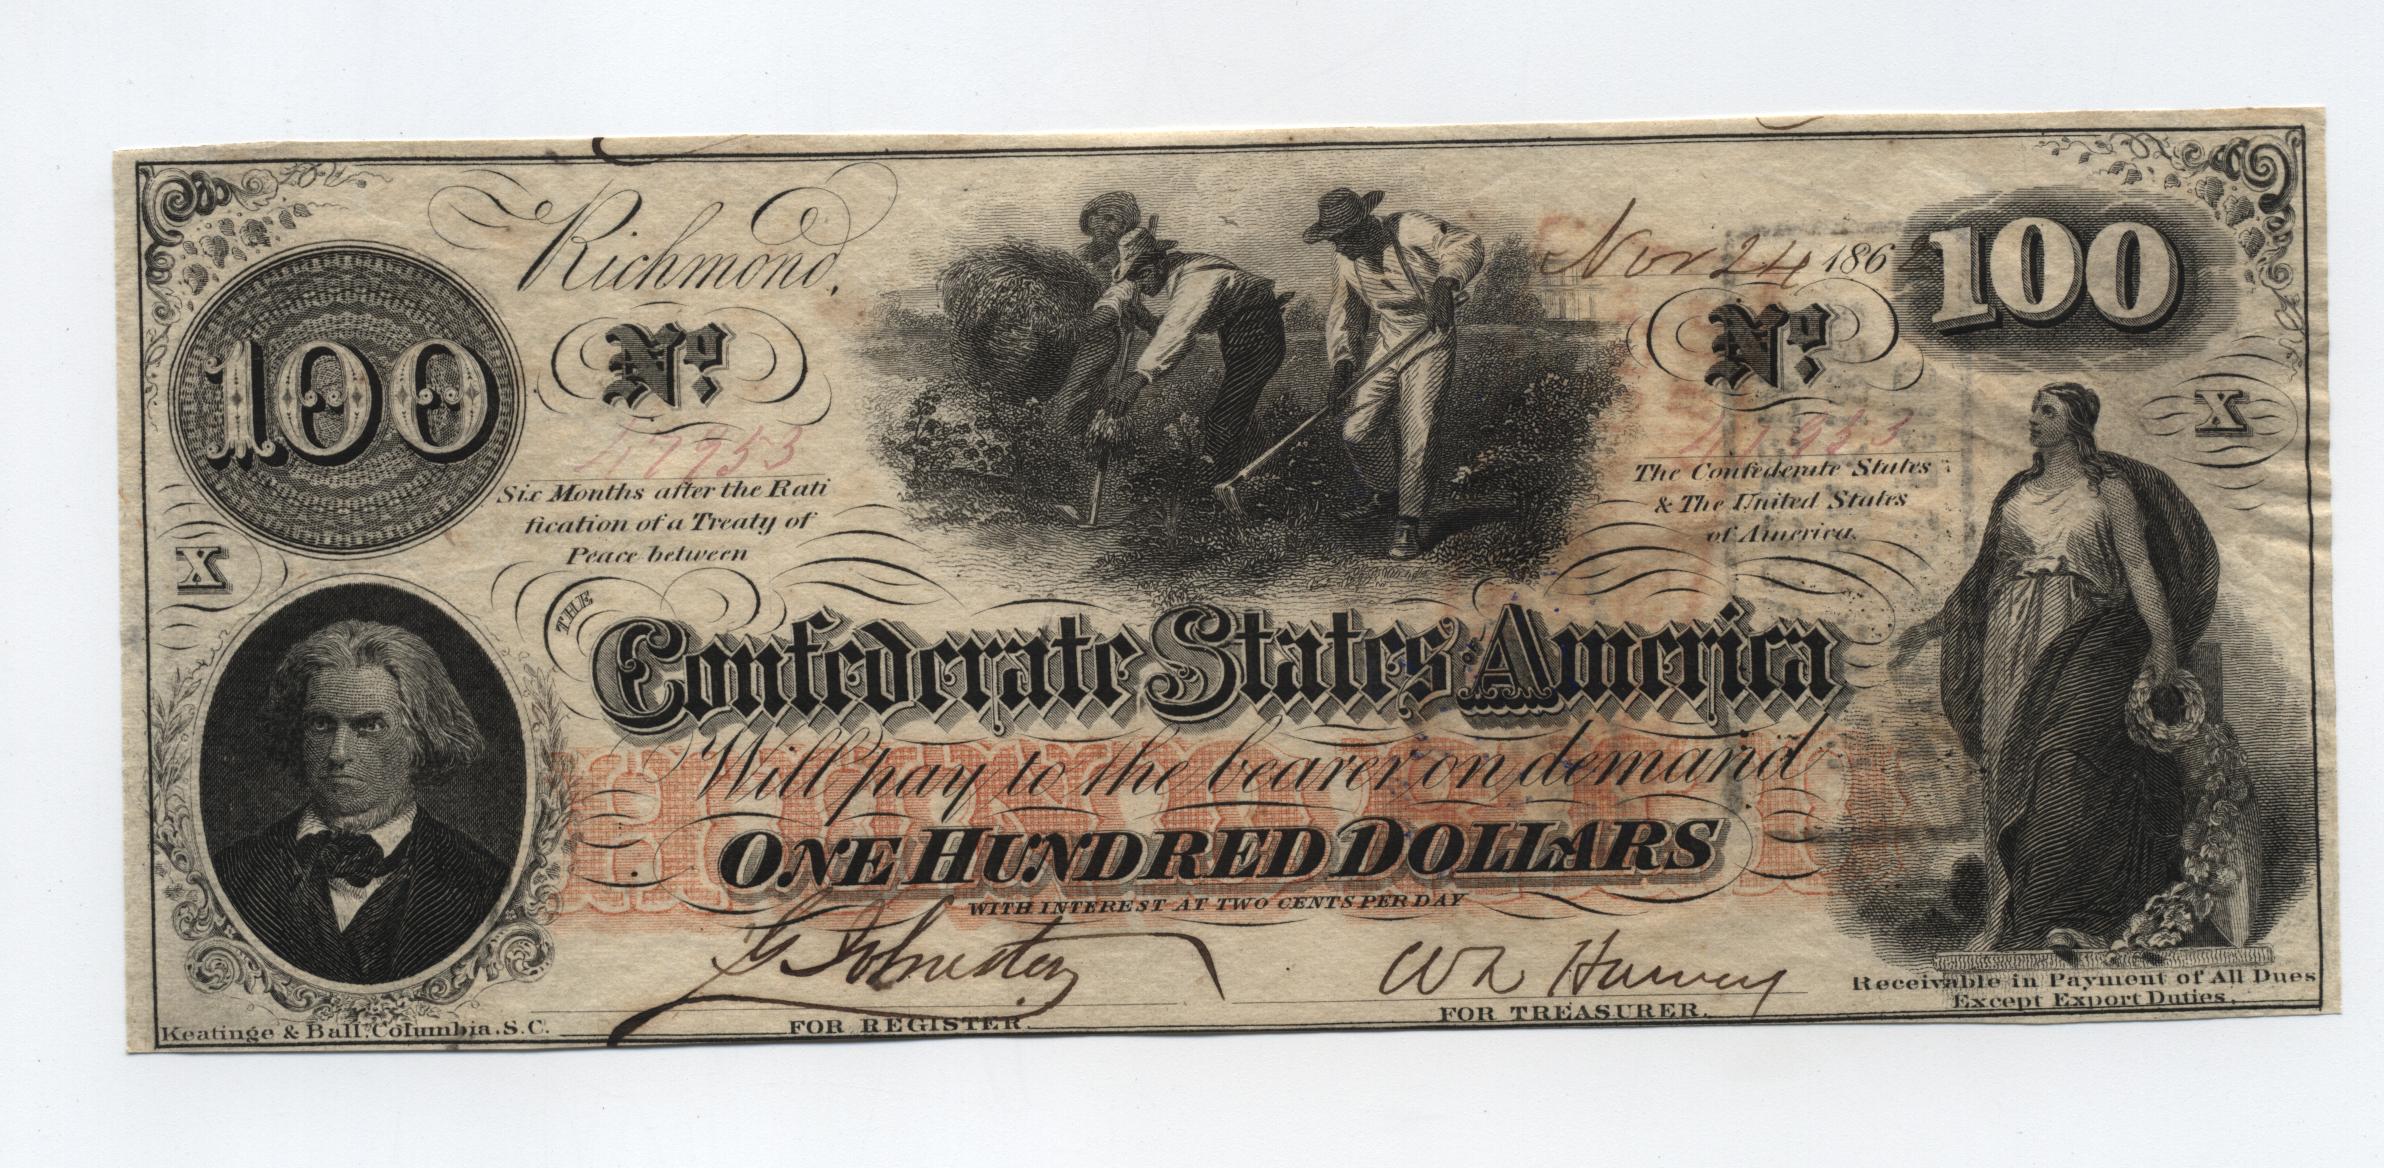 Richmond,
Nov 24 1862
100
100
No.
No.
47953
47953
X
X
Six Months after the Rati
fication of a Treaty of
Peace between
The Confederate States
& The United States
of America.
THE
Confederate States OF America
Will pay to the bearer on demand
HUNDRED
ONE HUNDRED DOLLARS
WITH INTEREST AT TWO CENTS PER DAY
G Johnston
FOR REGISTER.
FOR TREASURER.
Receivable in Payment of All Dues
Except Export Duties.
Keatinge & Ball, Columbia, S.C.